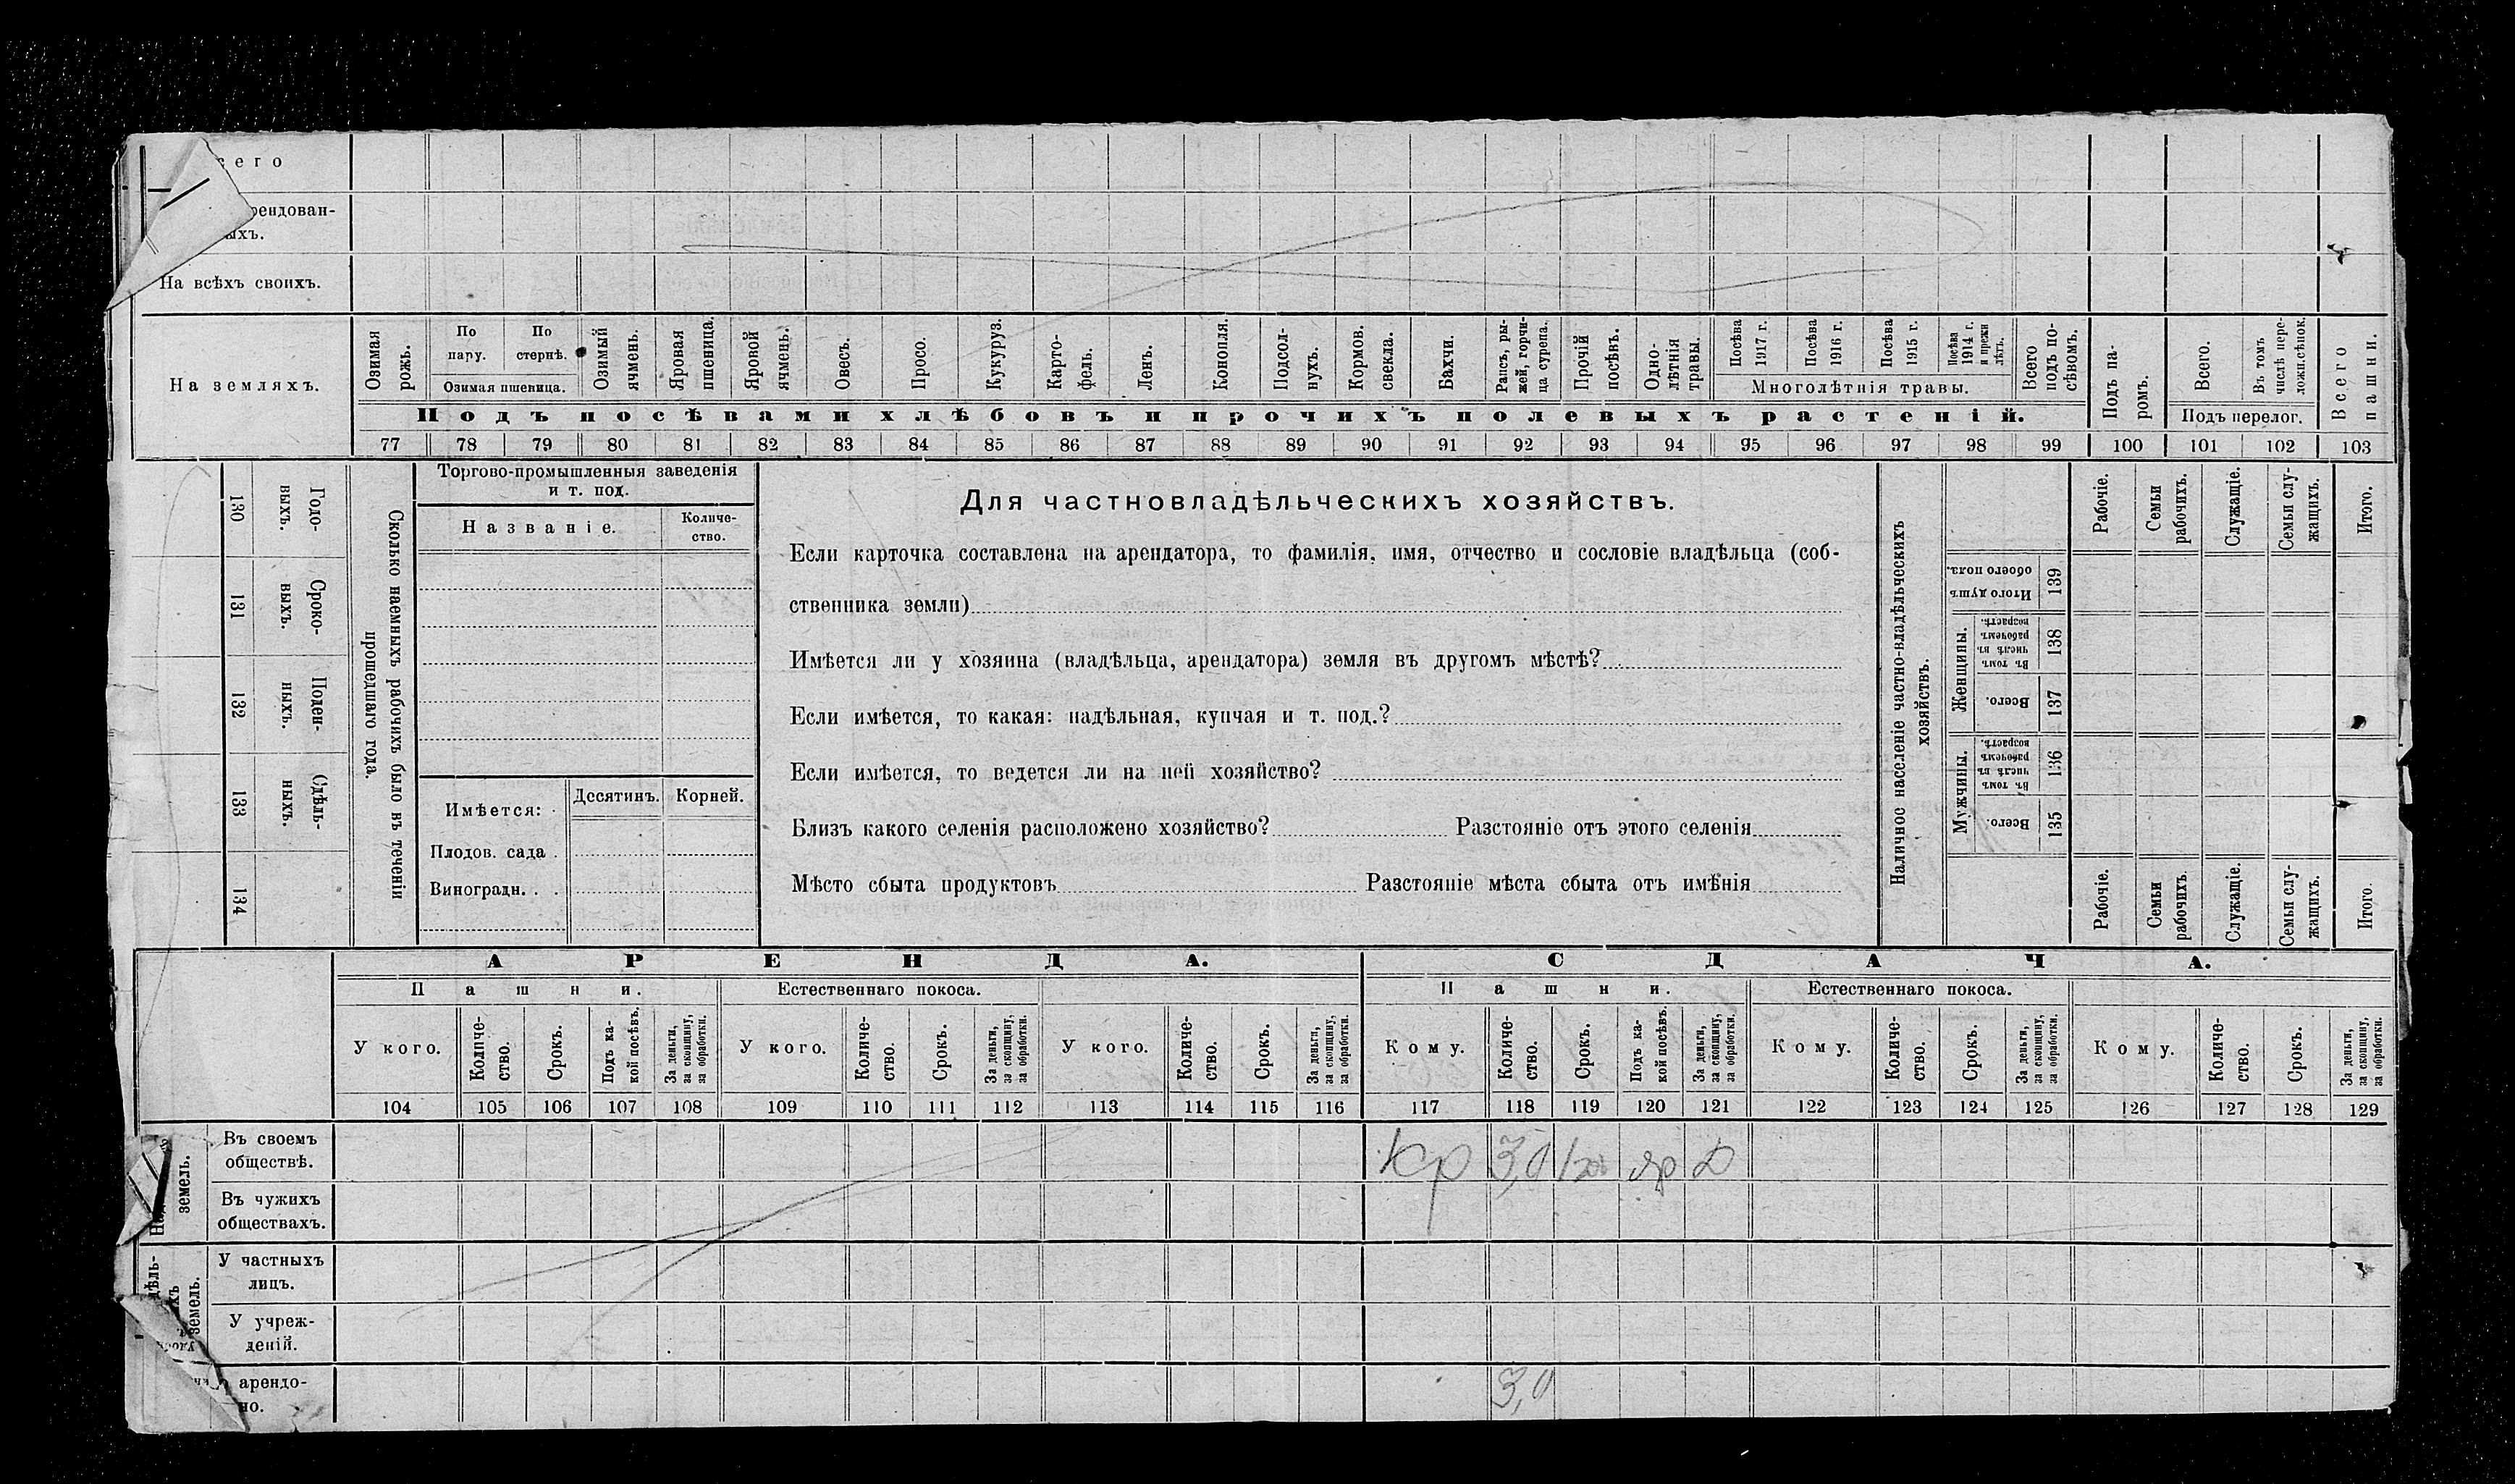 сего
рендован-
ыхъ.
На всѣхъ своихъ.
На земляхъ.
Озимая рожь.
По пару.
По стернѣ.
Озимая пшеница.
Озимый ячмень.
Яровая пшеница.
Яровой ячмень.
Овесъ.
Просо.
Кукуруз.
Карто-
фель.
Ленъ.
Конопля.
Подсол-
нухъ.
Кормов.
свекла.
Бахчи.
Рапсъ, ры-
жей, горчи-
ца сурепа.
Прочій
посѣвъ.
Одно-
лѣтнія
травы.
Посѣва
1917 г.
Посѣва
1916 г.
Посѣва
1915 г.
Посѣва
1914 г.
и прежн
лѣтъ.
Многолѣтнія травы.
Всего
подъ по-
сѣвомъ.
Подъ па-
ромъ.
Всего.
Въ томъ
числѣ пере-
ложн.сѣнок.
Подъ перелог.
Всего
пашни.
Подъ посѣвами хлѣбовъ и прочихъ полевыхъ растеній.
77 78 79 80 81 82 83 84 85 86 87 88 89 90 91 92 93 94 95 96 97 98 99 100 101 102 103
Годо-
выхъ.
130
Сроко-
выхъ.
131
Поден-
ныхъ.
132
Сдѣль-
ныхъ.
133
134
Сколько наемныхъ рабочихъ было въ теченіи
прошедшаго года.
Торгово-промышленныя заведенія
и т. под.
Названіе.
Количе-
ство.
Имѣется:
Десятинъ.
Корней.
Плодов. сада .
Виноградн. . .
Для частновладѣльческихъ хозяйствъ.
Если карточка составлена на арендатора, то фамилія, имя, отчество и сословіе владѣльца (соб-
ственника земли)
Имѣется ли у хозяина (владѣльца, арендатора) земля въ другомъ мѣстѣ?
Если имѣется, то какая: надѣльная, купчая и т. под.?
Если имѣется, то ведется ли на ней хозяйство?
Близъ какого селенія расположено хозяйство? Разстояніе отъ этого селенія
Мѣсто сбыта продуктовъ Разстояніе мѣста сбыта отъ имѣнія
Наличное населеніе частно-владѣльческихъ
хозяйствъ.
Рабочіе.
Семьи
рабочихъ.
Служащіе.
Семьи слу-
жащихъ.
Итого.
Итого душъ
обоего пола.
139
Женщины.
Въ томъ
числѣ въ
рабочемъ
возрастѣ.
138
Всего.
137
Мужчины.
Въ томъ
числѣ въ
рабочемъ
возрастѣ.
136
Всего.
135
Рабочіе.
Семьи
рабочихъ.
Служащіе.
Семьи слу-
жащихъ.
Итого.
АРЕНДА.
СДАЧА.
Пашни.
Естественнаго покоса.
Пашни.
Естественнаго покоса.
У кого.
Количе-
ство.
Срокъ.
Подъ ка-
кой посѣвъ.
За деньги,
за скопщину,
за обработки.
У кого.
Количе-
ство.
Срокъ.
За деньги,
за скопщину,
за обработки.
У кого.
Количе-
ство.
Срокъ.
За деньги,
за скопщину,
за обработки.
Кому.
Количе-
ство.
Срокъ.
Подъ ка-
кой посѣвъ.
За деньги,
за скопщину,
за обработки.
Кому.
Количе-
ство.
Срокъ.
За деньги,
за скопщину,
за обработки.
Кому.
Количе-
ство.
Срокъ.
За деньги,
за скопщину,
за обработки.
104 105 106 107 108 109 110 111 112 113 114 115 116 117 118 119 120 121 122 123 124 125 126 127 128 129
земель.
Въ своемъ
обществѣ.
Кр 3,0 яр Д
Въ чужихъ
обществахъ.
дѣль-
хъ
земель.
У частныхъ
лицъ.
У учреж-
деній.
арендо-
но.
3,0